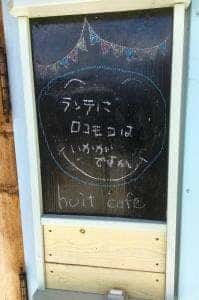 ランチに
ロコモコは
いかが
ですか
huit cafe